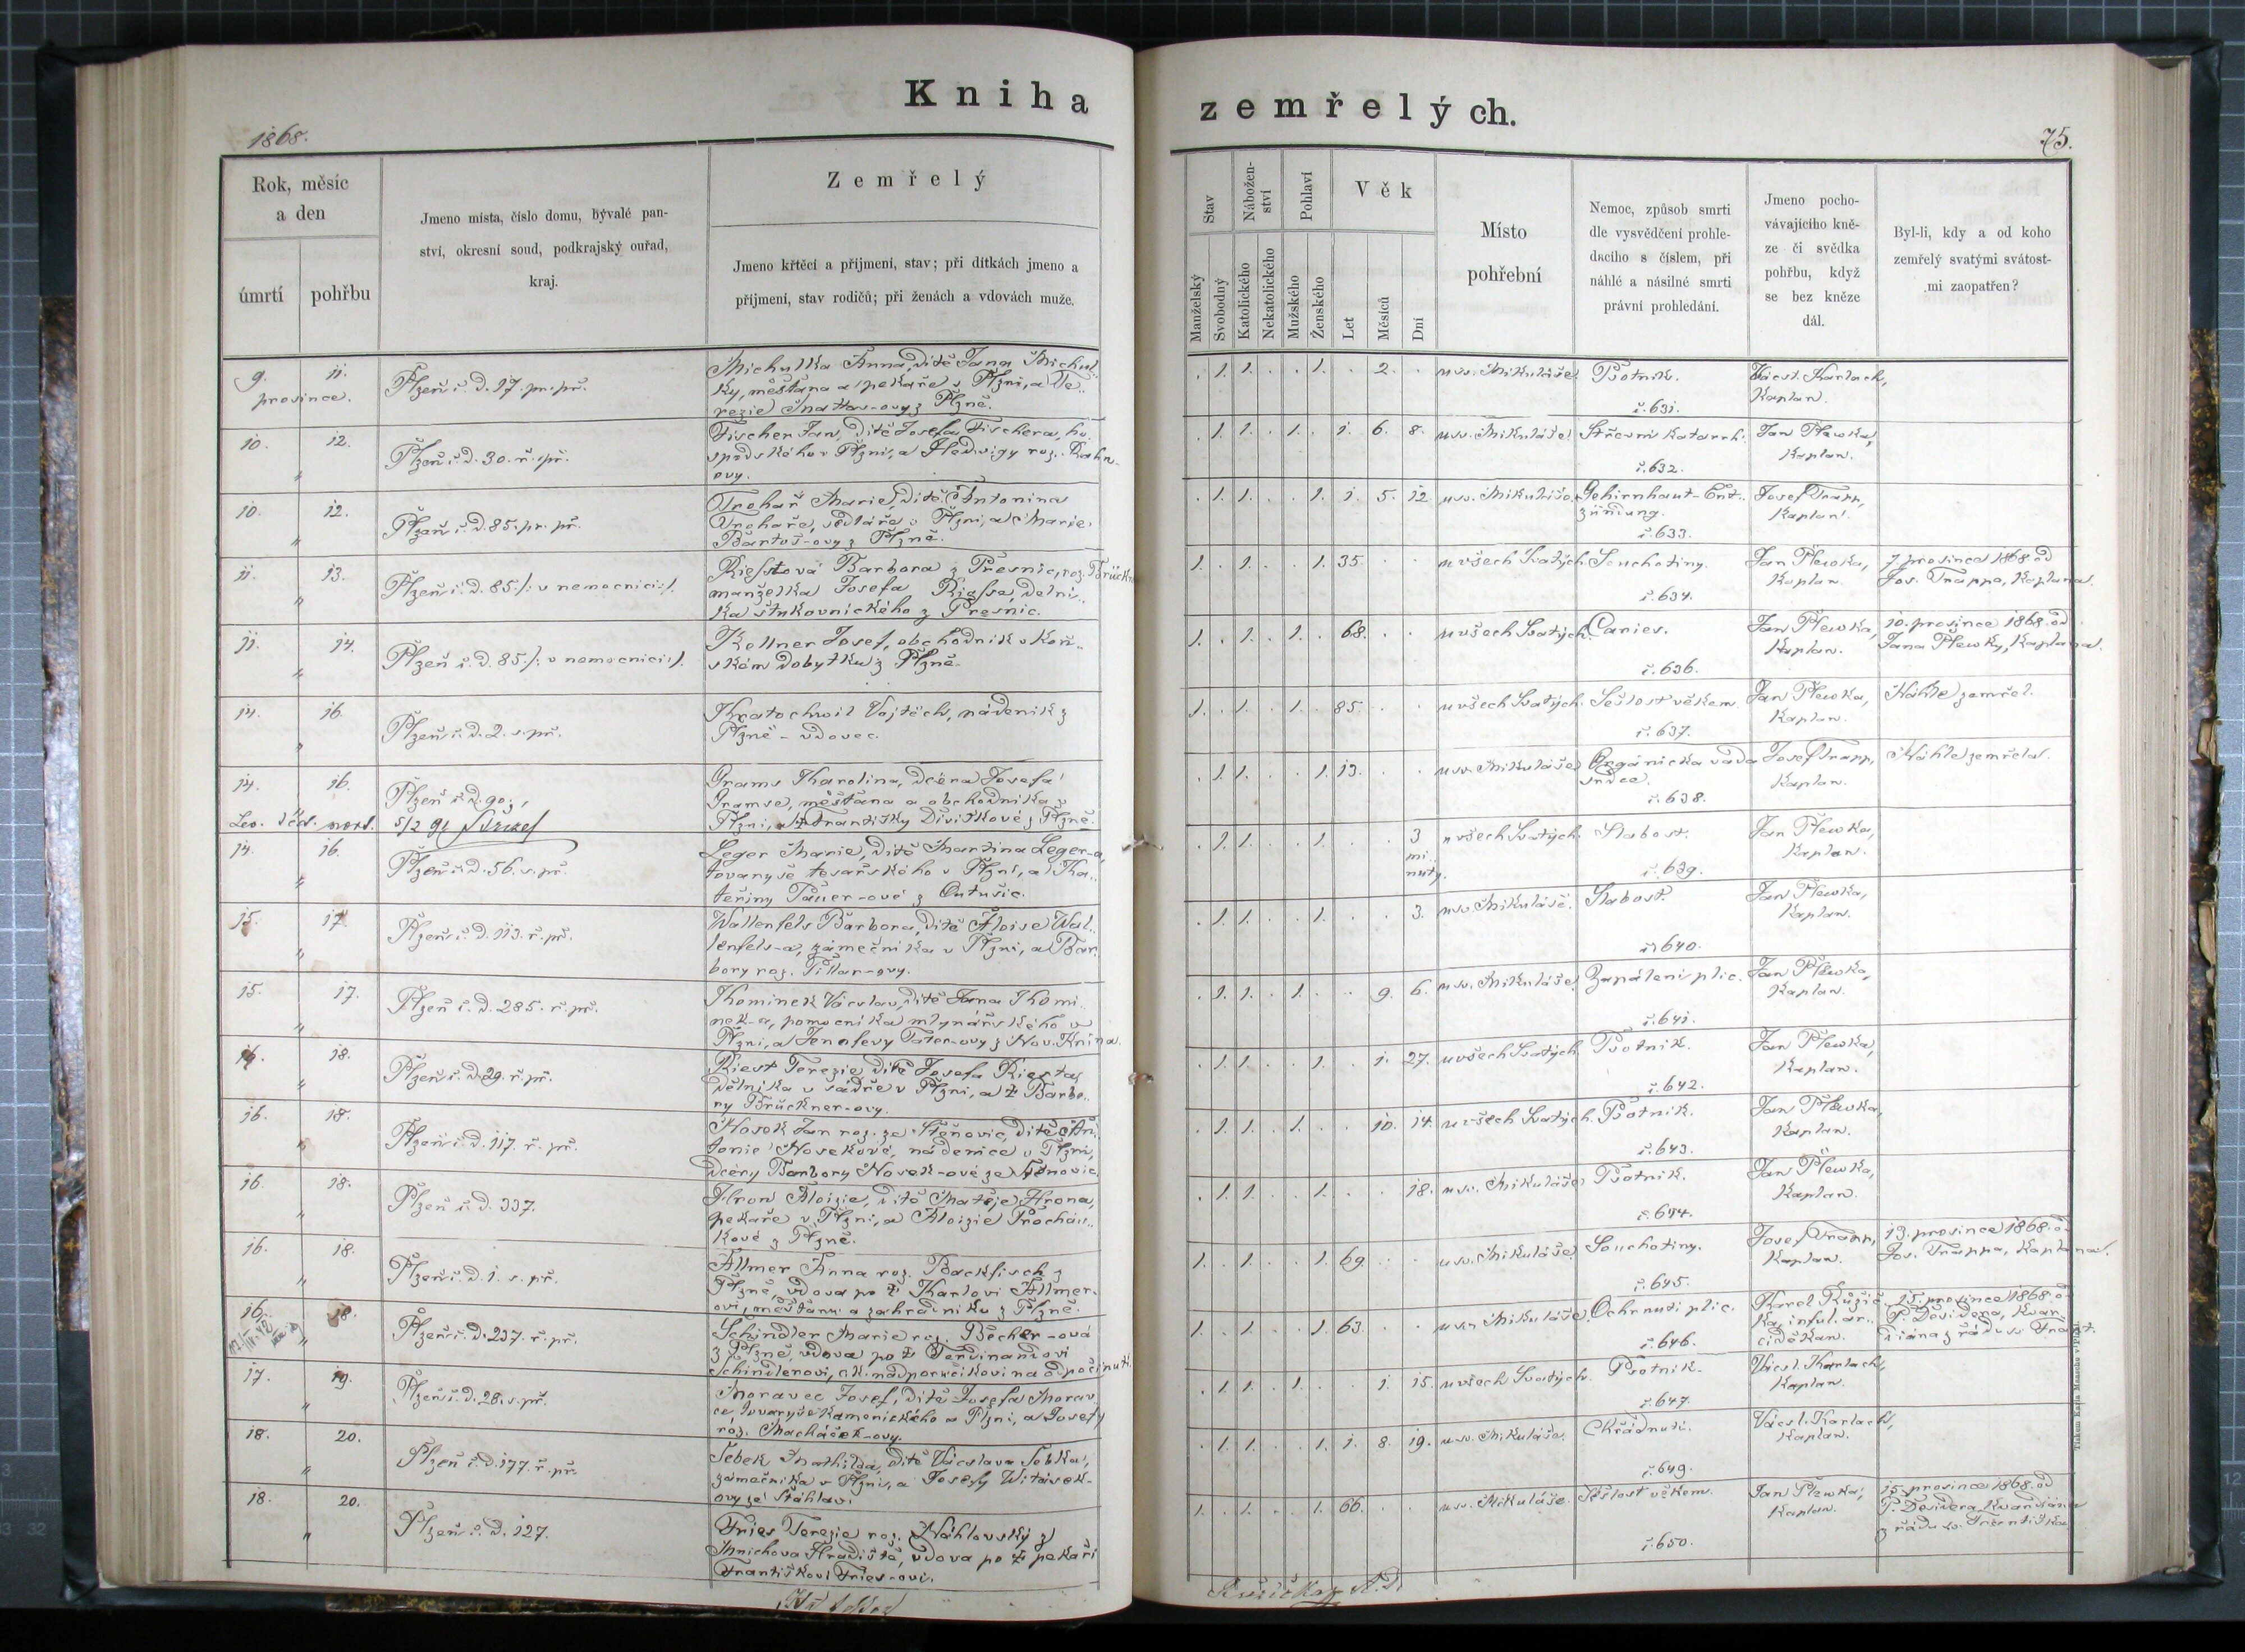 Kniha
zemřelých.
1868.
75.
Rok, měsíc
a den
úmrtí
pohřbu
Jmeno místa, číslo domu, bývalé pan-
ství, okresní soud, podkrajský ouřad,
kraj.
Zemřelý
Jmeno křtěcí a příjmení, stav; při dítkách jmeno a
příjmení, stav rodičů; při ženách a vdovách muže.
Stav
Manželský
Svobodný
Nábožen-
ství
Katolického
Nekatolického
Pohlaví
Mužského
Ženského
Věk
Let
Měsíců
Dní
Místo
pohřební
Nemoc, způsob smrti
dle vysvědčení prohle-
dacího s číslem, při
náhlé a násilné smrti
právní prohledání.
Jmeno pocho-
vávajícího kně-
ze či svědka
pohřbu, když
se bez kněze
dál.
Byl-li, kdy a od koho
zemřelý svatými svátost-
mi zaopatřen?
9. 11.
prosince.
Plzeň č. d. 17. pr. př.
Michulka Anna, dítě Jana Michul-
ky, měšťana a pekaře v Plzni, a Te-
rezie Mattas-ovy z Plzně.
. 1. 1. . . 1. . 2. . u sv. Mikuláše. Psotník.
č. 631.
Vácsl. Karlach,
Kaplan.
10. 12.
Plzeň č. d. 30. ř. př.
Fischer Jan, dítě Josefa Fischera, ho-
spodského v Plzni, a Hedwigy roz. Rahn-
ovy.
. 1. 1. . 1. . 1. 6. 8. u sv. Mikuláše. Střevní katarrh.
č. 632.
Jan Plewka,
Kaplan.
10. 12.
Plzeň č. d. 85. pr. př.
Trohař Marie, dítě Antonína
Trohaře, sedláře v Plzni, a Marie
Bartoš-ovy z Plzně.
. 1. 1. . . 1. 1. 5. 12 u sv. Mikuláše. Gehirnhaut-Ent-
zündung.
č. 633.
Josef Trapp,
Kaplan.
11. 13.
Plzeň č. d. 85 /: v nemocnici :/.
Barbora z Přesnic, roz. Brückn
manželka Josefa
z Přesnic.
1. . 1. . . 1. 35. . . u všech Svatých. Souchotiny.
č. 634.
Jan Plewka,
Kaplan.
7. prosince 1868 od
Jos. Trappa, Kaplana.
11. 14.
Plzeň č. d. 85 /: v nemocnici :/.
Kellner Josef, obchodník v koň-
ském dobytku z Plzně.
1. . 1. . 1. . 68. . . u všech Svatých. Caries.
č. 636.
Jan Plewka,
Kaplan.
10. prosince 1868 od
Jana Plewky, Kaplana.
14. 16.
Plzeň č. d. 2. s. př.
Kratochwil Vojtěch, nádeník z
Plzně - vdovec.
1. . 1. . 1. . 85. . . u všech Svatých. Sešlost věkem.
č. 637.
Jan Plewka,
Kaplan.
Náhle zemřel.
14. 16.
Plzeň č. d. 90;
Grams Karolina, dcera Josefa
Gramse, měšťana a obchodníka v
Plzni, a † Františky Diviškové z Plzně.
. 1. 1. . . 1. 13. . . u sv. Mikuláše. Orgánická vada
srdce.
č. 638.
Josef Trapp,
Kaplan.
Náhle zemřela.
14. 16.
Plzeň č. d. 56. s. př.
Leger Marie, dítě Martina Leger-a,
tovaryše tesařského v Plzni, a Ka-
teřiny Pauer-ové z
. 1. 1. . . 1. . . 3
mi-
nuty.
u všech Svatých. Slabost.
č. 639.
Jan Plewka,
Kaplan.
15. 17.
Plzeň č. d. 113. ř. př.
Wallenfels Barbora, dítě Aloise Wal-
lenfels-a, zámečníka v Plzni, a Bar-
bory roz.
. 1. 1. . . 1. . . 3. u sv. Mikuláše. Slabost.
č. 640.
Jan Plewka,
Kaplan.
15. 17.
Plzeň č. d. 285. ř. př.
Kominek Václav, dítě Jana Komi-
nek-a, pomocníka mlynářského v
Plzni, a Jenofevy Pater-ovy z Nov. Knína.
. 1. 1. . 1. . . 9. 6. u sv. Mikuláše. Zapálení plic.
č. 641.
Jan Plewka,
Kaplan.
16. 18.
Plzeň č. d. 29. ř. př.
Riest Terezie, dítě Josefa Riesta,
dělníka v Plzni, a † Barbo-
ry Brückner-ovy.
. 1. 1. . . 1. . 1. 27. u všech Svatých. Psotník.
č. 642.
Jan Plewka,
Kaplan.
16. 18.
Plzeň č. d. 117. ř. př.
Nosek Jan roz. ze Štěnovic, dítě An-
tonie Noskové, nádenice v Plzni,
dcery Barbory Nosek-ové ze Štěnovic.
. 1. 1. . 1. . . 10. 14. u všech Svatých. Psotník.
č. 643.
Jan Plewka,
Kaplan.
16. 18.
Plzeň č. d. 337.
Hron Aloizie, dítě Matěje Hrona,
pekaře v Plzni, a Aloizie Procház-
kové z Plzně.
. 1. 1. . . 1. . . 18. u sv. Mikuláše. Psotník.
č. 644.
Jan Plewka,
Kaplan.
16. 18.
Plzeň č. d. 1. s. př.
Allmer Anna roz. Backfisch z
Plzně, vdova po † Karlovi Allmer-
ovi, měšťanu a zahradníku z Plzně.
1. . 1. . . 1. 69. . . u sv. Mikuláše. Souchotiny.
č. 645.
Josef Trapp,
Kaplan.
13. prosince 1868 o
Jos. Trappa, Kaplana.
16. 18.
Plzeň č. d. 237. ř. př.
Schindler Marie roz. Becher-ová
z Plzně, vdova po † Ferdinandovi
Schindlerovi, c. k. nadporučíkovi na odpočinutí.
1. . 1. . . 1. 63. . . u sv. Mikuláše. Ochrnutí plic.
č. 646.
Karel Růžič-
ka, inful. ar-
ciděkan.
15. prosince 1868 o
P. Desidera, Kvar-
diána z řádu sv. Frant.
17. 19.
Plzeň č. d. 28. s. př.
Moravec Josef, dítě Josefa Morav-
ce, tovaryše kamenického v Plzni, a Josefy
roz. Macháček-ovy.
. 1. 1. . 1. . . 1. 15. u všech Svatých. Psotník.
č. 647.
Vácsl. Karlach,
Kaplan.
18. 20.
Plzeň č. d. 177. ř. př.
Šebek Mathilda, dítě Václava Šebka,
zámečníka v Plzni, a Josefy Witásek-
ovy ze Šťáhlav.
. 1. 1. . . 1. 1. 8. 19. u sv. Mikuláše. Chřadnutí.
č. 649.
Vácsl. Karlach,
Kaplan.
18. 20.
Plzeň č. d. 127.
Fries Terezie roz. Náhlovský z
Mnichova Hradiště, vdova po † pekaři
Františkovi Fries-ovi.
1. . 1. . . 1. 66. . . u sv. Mikuláše. Sešlost věkem.
č. 650.
Jan Plewka,
Kaplan.
15. prosince 1868 od
P. Desidera, Kvardiána
z řádu sv. Františka